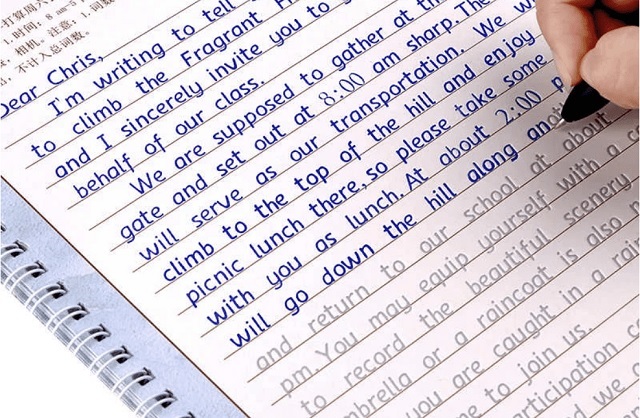 打算周六
1.时间: 8 am-5
相机。注意: 1.词数
不计入总词数。
Dear Chris,
I'm writing to tell
to climb the Fragrant
and I sincerely invite you to
behalf of our class.
We are supposed to gather at the
gate and set out at 8:00 am sharp. The
will serve as our transportation. We w
climb to the top of the hill and enjoy
picnic lunch there, so please take some
with you as lunch. At about 2:00 p
will go down the hill along ano
and return to our school at about
pm. You may equip yourself with a
to record the beautiful scenery
mbrella or a raincoat is also
you are caught in a rai
e to join us.
articipation
d we